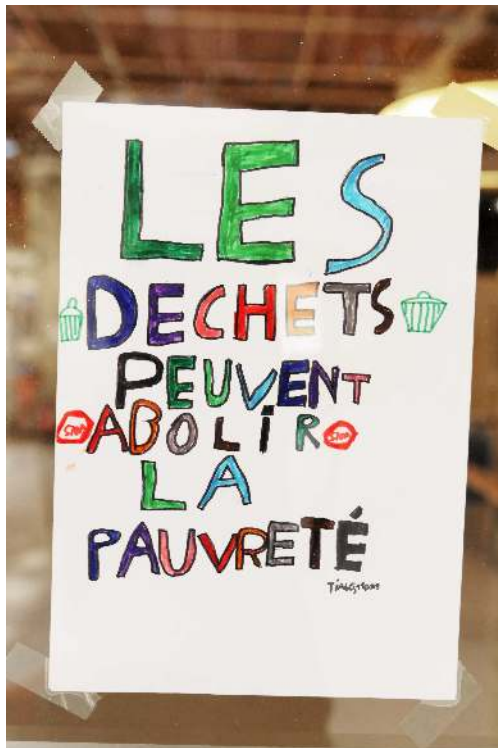 LES
DECHETS
PEUVENT
STOP ABOLiR STOP
LA
PAUVRETÉ